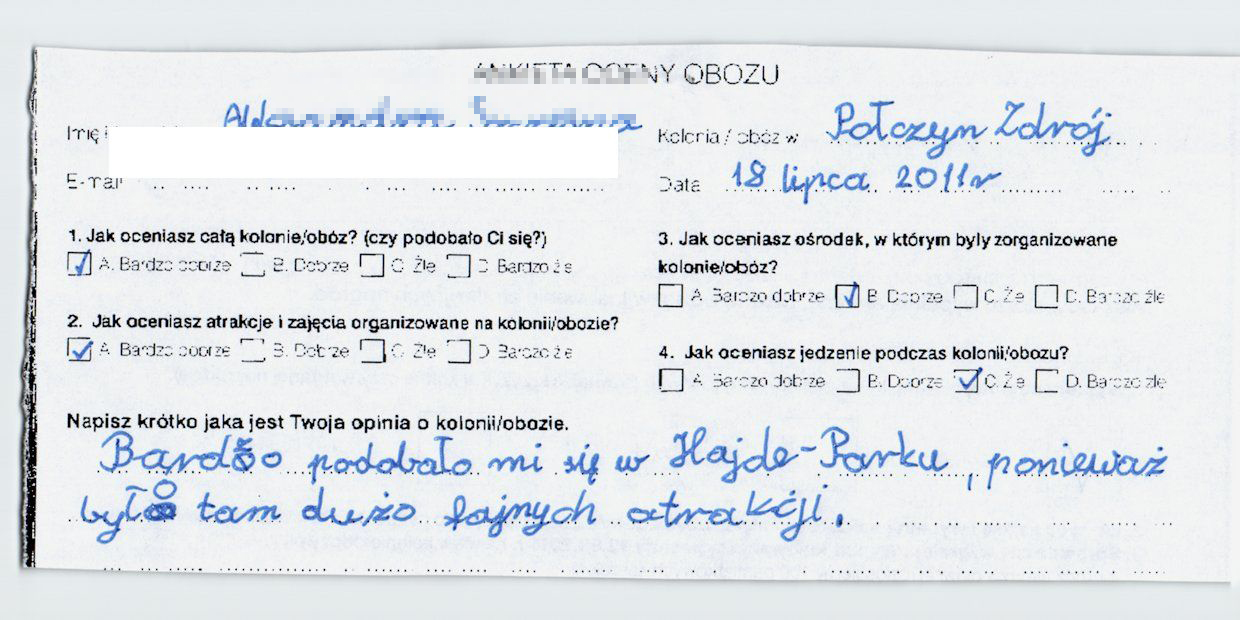 ANKIETA OCENY OBOZU
Imię
Kolonia / obóz w Połczyn Zdrój
E-mail
Data 18 lipca 2011r
1. Jak oceniasz całą kolonie/obóz? (czy podobało Ci się?)
A. Bardzo dobrze B. Dobrze C. Źle D. Bardzo źle
2. Jak oceniasz atrakcje i zajęcia organizowane na kolonii/obozie?
A. Bardzo dobrze B. Dobrze C. Źle D. Bardzo źle
3. Jak oceniasz ośrodek, w którym były zorganizowane
kolonie/obóz?
A. Bardzo dobrze B. Dobrze C. Źle D. Bardzo źle
4. Jak oceniasz jedzenie podczas kolonii/obozu?
A. Bardzo dobrze B. Dobrze C. Źle D. Bardzo źle
Napisz krótko jaka jest Twoja opinia o kolonii/obozie.
Bardzo podobało mi się w Hajde-Parku, ponieważ
było tam dużo fajnych atrakcji.